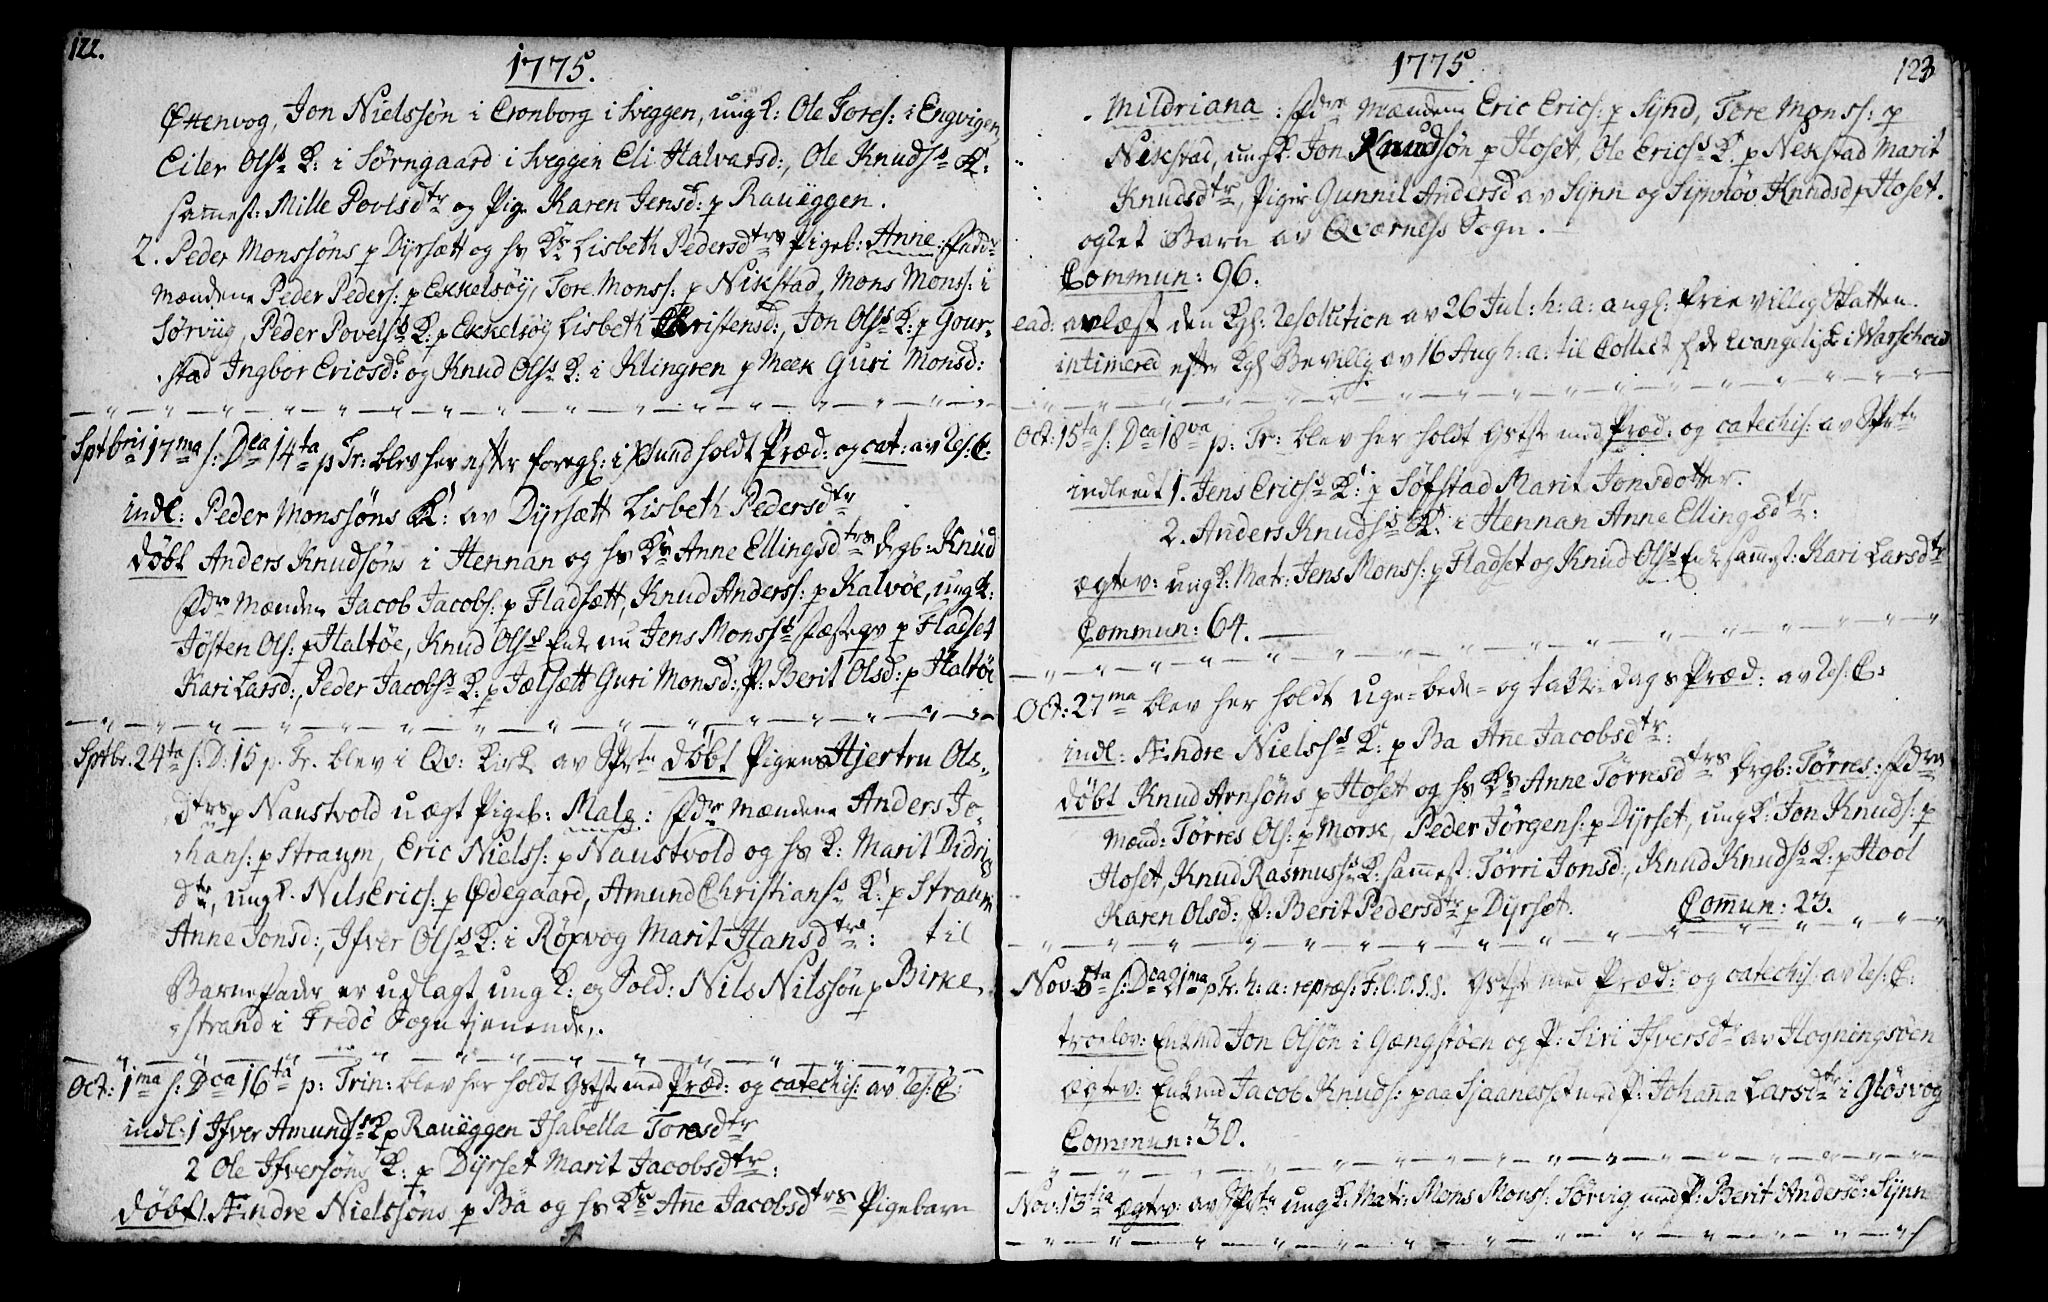 122.
1775.
Ottenvog, Jon Nielssøn i Cronborg i Sveggen, ung K: Ole Tores: i Engvigen,
Eiler Olss K: i Sørngaard i Sveggen Eli Halvarsd:, Ole Knudss K:
sammest: Mille Povlsdtr og Pige Karen Jensd: p Rauëggen.
2. Peder Monssøns p Dÿrsætt og hs Ks Lisbeth Pedersdtrs Pigeb: Anne: Fadd
Mændene Peder Peders: p Ekkelsøÿ, Tore Monss: p Nikstad, Mons Monss: i
Sørviig, Peder Povelss K: p Ekkelsøÿ Lisbeth Christensd:, Jon Olss K: p Gour-
stad Ingbor Ericsd: og Knud Olss K: i Klingren p Meek Guri Monsd:
Sptbris 17ma s: Dca 14ta p Tr: blev her efter foregl: i Sund holdt Præd: og cat: av Res: C:
indl: Peder Monssøns K: av Dÿrsætt Lisbeth Pedersdtr
døbt Anders Knudsøns i Hennan og hs Ks Anne Ellingsdtrs Drgb: Knud
Fdr Mænden Jacob Jacobs: p Fladsætt, Knud Anderss: p Kalvöe, ung K:
Jøsten Ols: p Haltøe, Knud Olss Enke nu Jens Monss p Fladset
Kari Larsd:, Peder Jacobss K: p Jælsætt Guri Monsd: P: Berit Olsd: p Haltöe
Sptbr. 24ta s: D: 15 p. Tr. blev i Qv: Kirke av SPrtn døbt Pigens Hjertru Ols-
dtrs p Naustvold uægt Pigeb: Male: Fdr Mændene Anders Jo-
hans: p Straum, Eric Nielss: p Naustvold og hs K: Marit Didrics
dtr, ung K. Nils Erics: p Ødegaard, Amund Christianss K: p Straum
Anne Jonsd:, Ifver Olss K: i Röxvog Marit Hansdtr: til
Barnefader er udlagt ung K: og Sold: Nils Nilssøn p Birke,
strand i Fredö Sogn tjenende.
Oct: 1ma s: Dca 16ta p: Trin: blev her holdt Gstste med Præd: og catechis: av Res: C:
indl: 1 Ifver Amundss K p Rauëggen Isabella Toresdtr
2 Ole Ifversøns K: p Dÿrset Marit Jacobsdtr:
døbt 1. Ændre Nielssøns p Bä og hs Ks Ane Jacobsdtrs Pigebarn
1775.
123
Mildriana: Fdr Mændene Eric Erics: p Sÿnd, Tore Monss: p
Nikstad, ung K: Jon Knudsøn p Hoset, Ole Ericss K: p Nekstad Marit
Knudsdtr, Piger Gunnil Andersd av Sÿnn og Sÿnnöv Knudsd p Hoset.
og et Barn av Qværness Sogn.
Commun: 96.
ead: avlæst den Kgl: Resolution av 26 Jul: h: a: angl: frie villig Skatten.
intimered efter Kgl Bevillg av 16 Aug h: a: til Collect f de Evangeliske i Warschow
Oct: 15ta s: Dca 18va p: Tr: blev her holdt Gstste med Præd: og catechis: av SPrtn
indleedt 1. Jens Ericss K: p Søfstad Marit Jonsdotter.
2. Anders Knudss K: i Hennan Anne Ellingsdtr:
ægtev: ung K: Matr: Jens Monss: p Fladset og Knud Olss Enke sammest: Kari Larsdtr
Commun: 64.
Oct: 27ma blev her holdt uge-bede- og takke-dags Præd: av Res: C:
indl: Ændre Nielss K: p Ba Ane Jacobsdtr:
døbt Knud Arnsøns p Hoset og hs Ks Anne Törresdtrs Drgb: Törres: Fdre
Mænd: Törres Ols: p Morsk, Peder Jørgens: p Dÿrset, ung K: Jon Knuds: p
Hoset, Knud Rasmuss K: sammest: Törri Jonsd:, Knud Knudss K: p Hool
Karen Olsd: P: Berit Pedersdtr p Dÿrset. Commun: 23.
Nov: 5ta s: Dca 21ma p Tr. h: a: repræs: F: O. O. S. S. Gstste med Præd: og catechis: av Res: C:
troelov: Enkmd Jon Olsøn i Gængstøen og P: Siri Ifversdtr av Hogningsøen
ægtev: Enkmd Jacob Knuds: paa Sjaanesset med P: Johanna Larsdtr i Gløsvog
Commun: 30.
Nov: 13tia ægtev: av SPrtn ung K: Matr: Mons Monss: Sörvig med P: Berit Andersd: Sÿnn